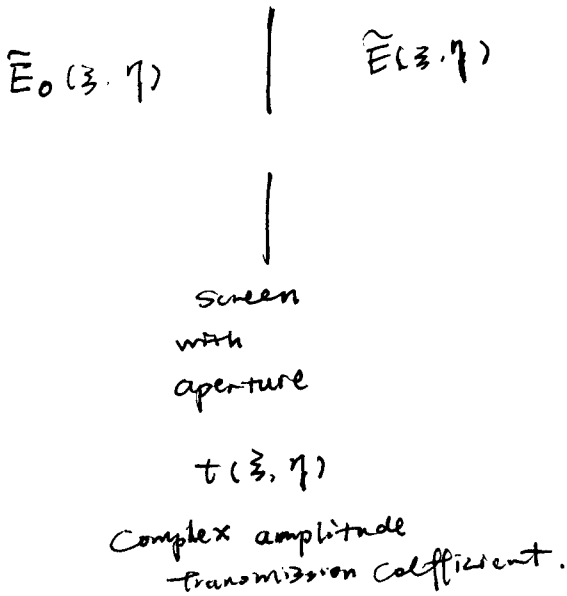 Ẽ₀(ξ, η)
Ẽ(ξ, η)
screen
with
aperture
t(ξ, η)
Complex amplitude
transmission coefficient.